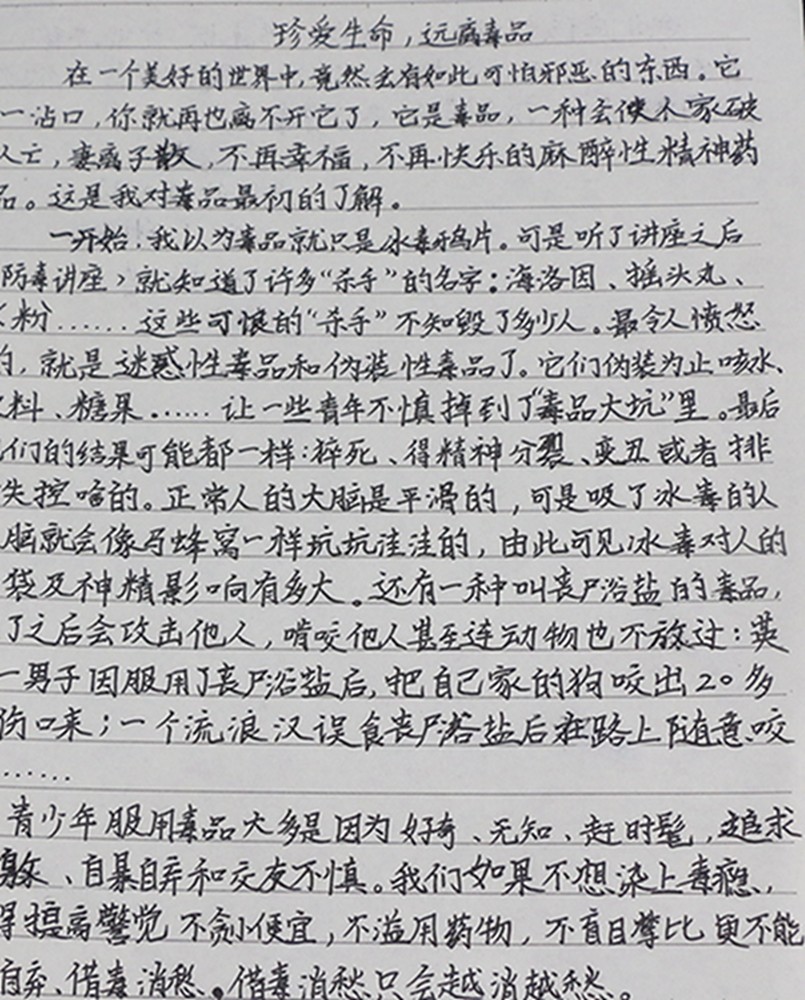 珍爱生命，远离毒品
在一个美好的世界中，竟然会有如此可怕邪恶的东西。它
一沾口，你就再也离不开它了，它是毒品，一种会使人家破
人亡，妻离子散，不再幸福，不再快乐的麻醉性精神药
品。这是我对毒品最初的了解。
一开始，我以为毒品就只是冰毒鸦片。可是听了讲座之后
防毒讲座，就知道了许多“杀手”的名字：海洛因、摇头丸、
粉……这些可恨的“杀手”不知毁了多少人。最令人愤怒
的，就是迷惑性毒品和伪装性毒品了。它们伪装为止咳水、
料、糖果……让一些青年不慎掉到了“毒品大坑”里。最后
们的结果可能都一样：猝死、得精神分裂、变丑或者排
失控啥的。正常人的大脑是平滑的，可是吸了冰毒的人
脑就会像马蜂窝一样坑坑洼洼的，由此可见冰毒对人的
袋及神精影响有多大。还有一种叫丧尸浴盐的毒品，
了之后会攻击他人，啃咬他人甚至连动物也不放过：英
一男子因服用了丧尸浴盐后，把自己家的狗咬出20多
伤口来；一个流浪汉误食丧尸浴盐后在路上随意咬
……
青少年服用毒品大多是因为好奇、无知、赶时髦，追求
、自暴自弃和交友不慎。我们如果不想染上毒瘾，
得提高警觉 不贪小便宜，不滥用药物，不盲目攀比 更不能
自弃、借毒消愁。借毒消愁只会越消越愁。